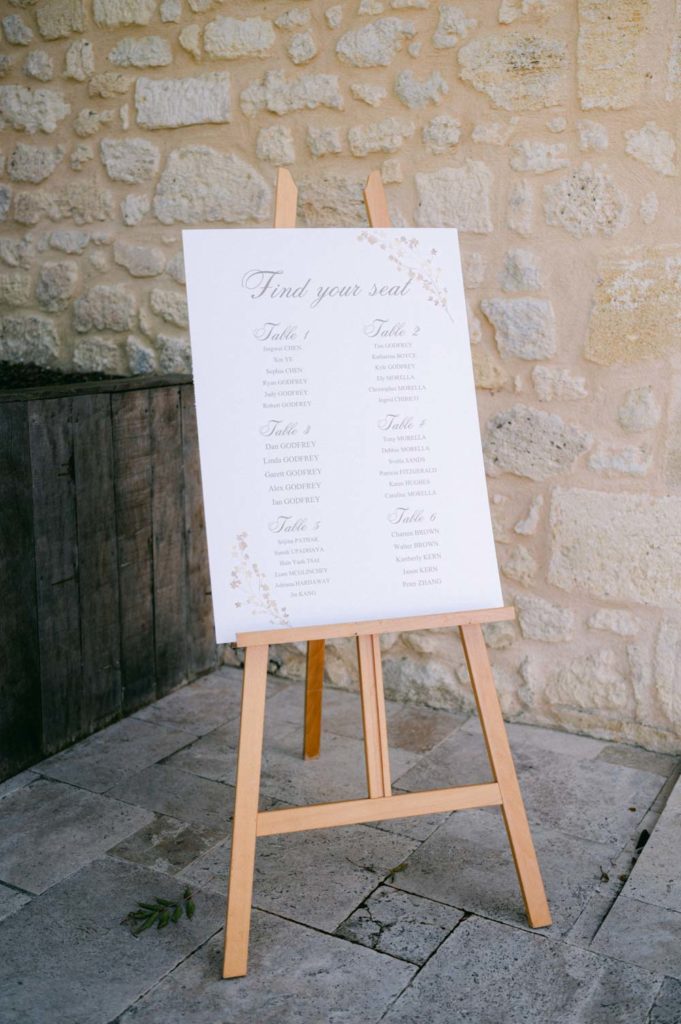 Find your seat
Table 1
Jingwei CHEN
Xin YE
Sophie CHEN
Ryan GODFREY
Judy GODFREY
Robert GODFREY
Table 2
Tim GODFREY
Katharine BOYCE
Kyle GODFREY
Ely MORELLA
Christopher MORELLA
Ingrid CHIRICO
Table 3
Dan GODFREY
Linda GODFREY
Garett GODFREY
Alex GODFREY
Ian GODFREY
Table 4
Tony MORELLA
Debbie MORELLA
Svetla SANDS
Patricia FITZGERALD
Karen HUGHES
Caroline MORELLA
Table 5
PATHAK
UPADHAYA
Hsin Yueh TSAI
Liam MCGLINCHEY
Adriana HARDAWAY
Jin KANG
Table 6
Charten BROWN
Walter BROWN
Kimberly KERN
Jason KERN
Peter ZHANG